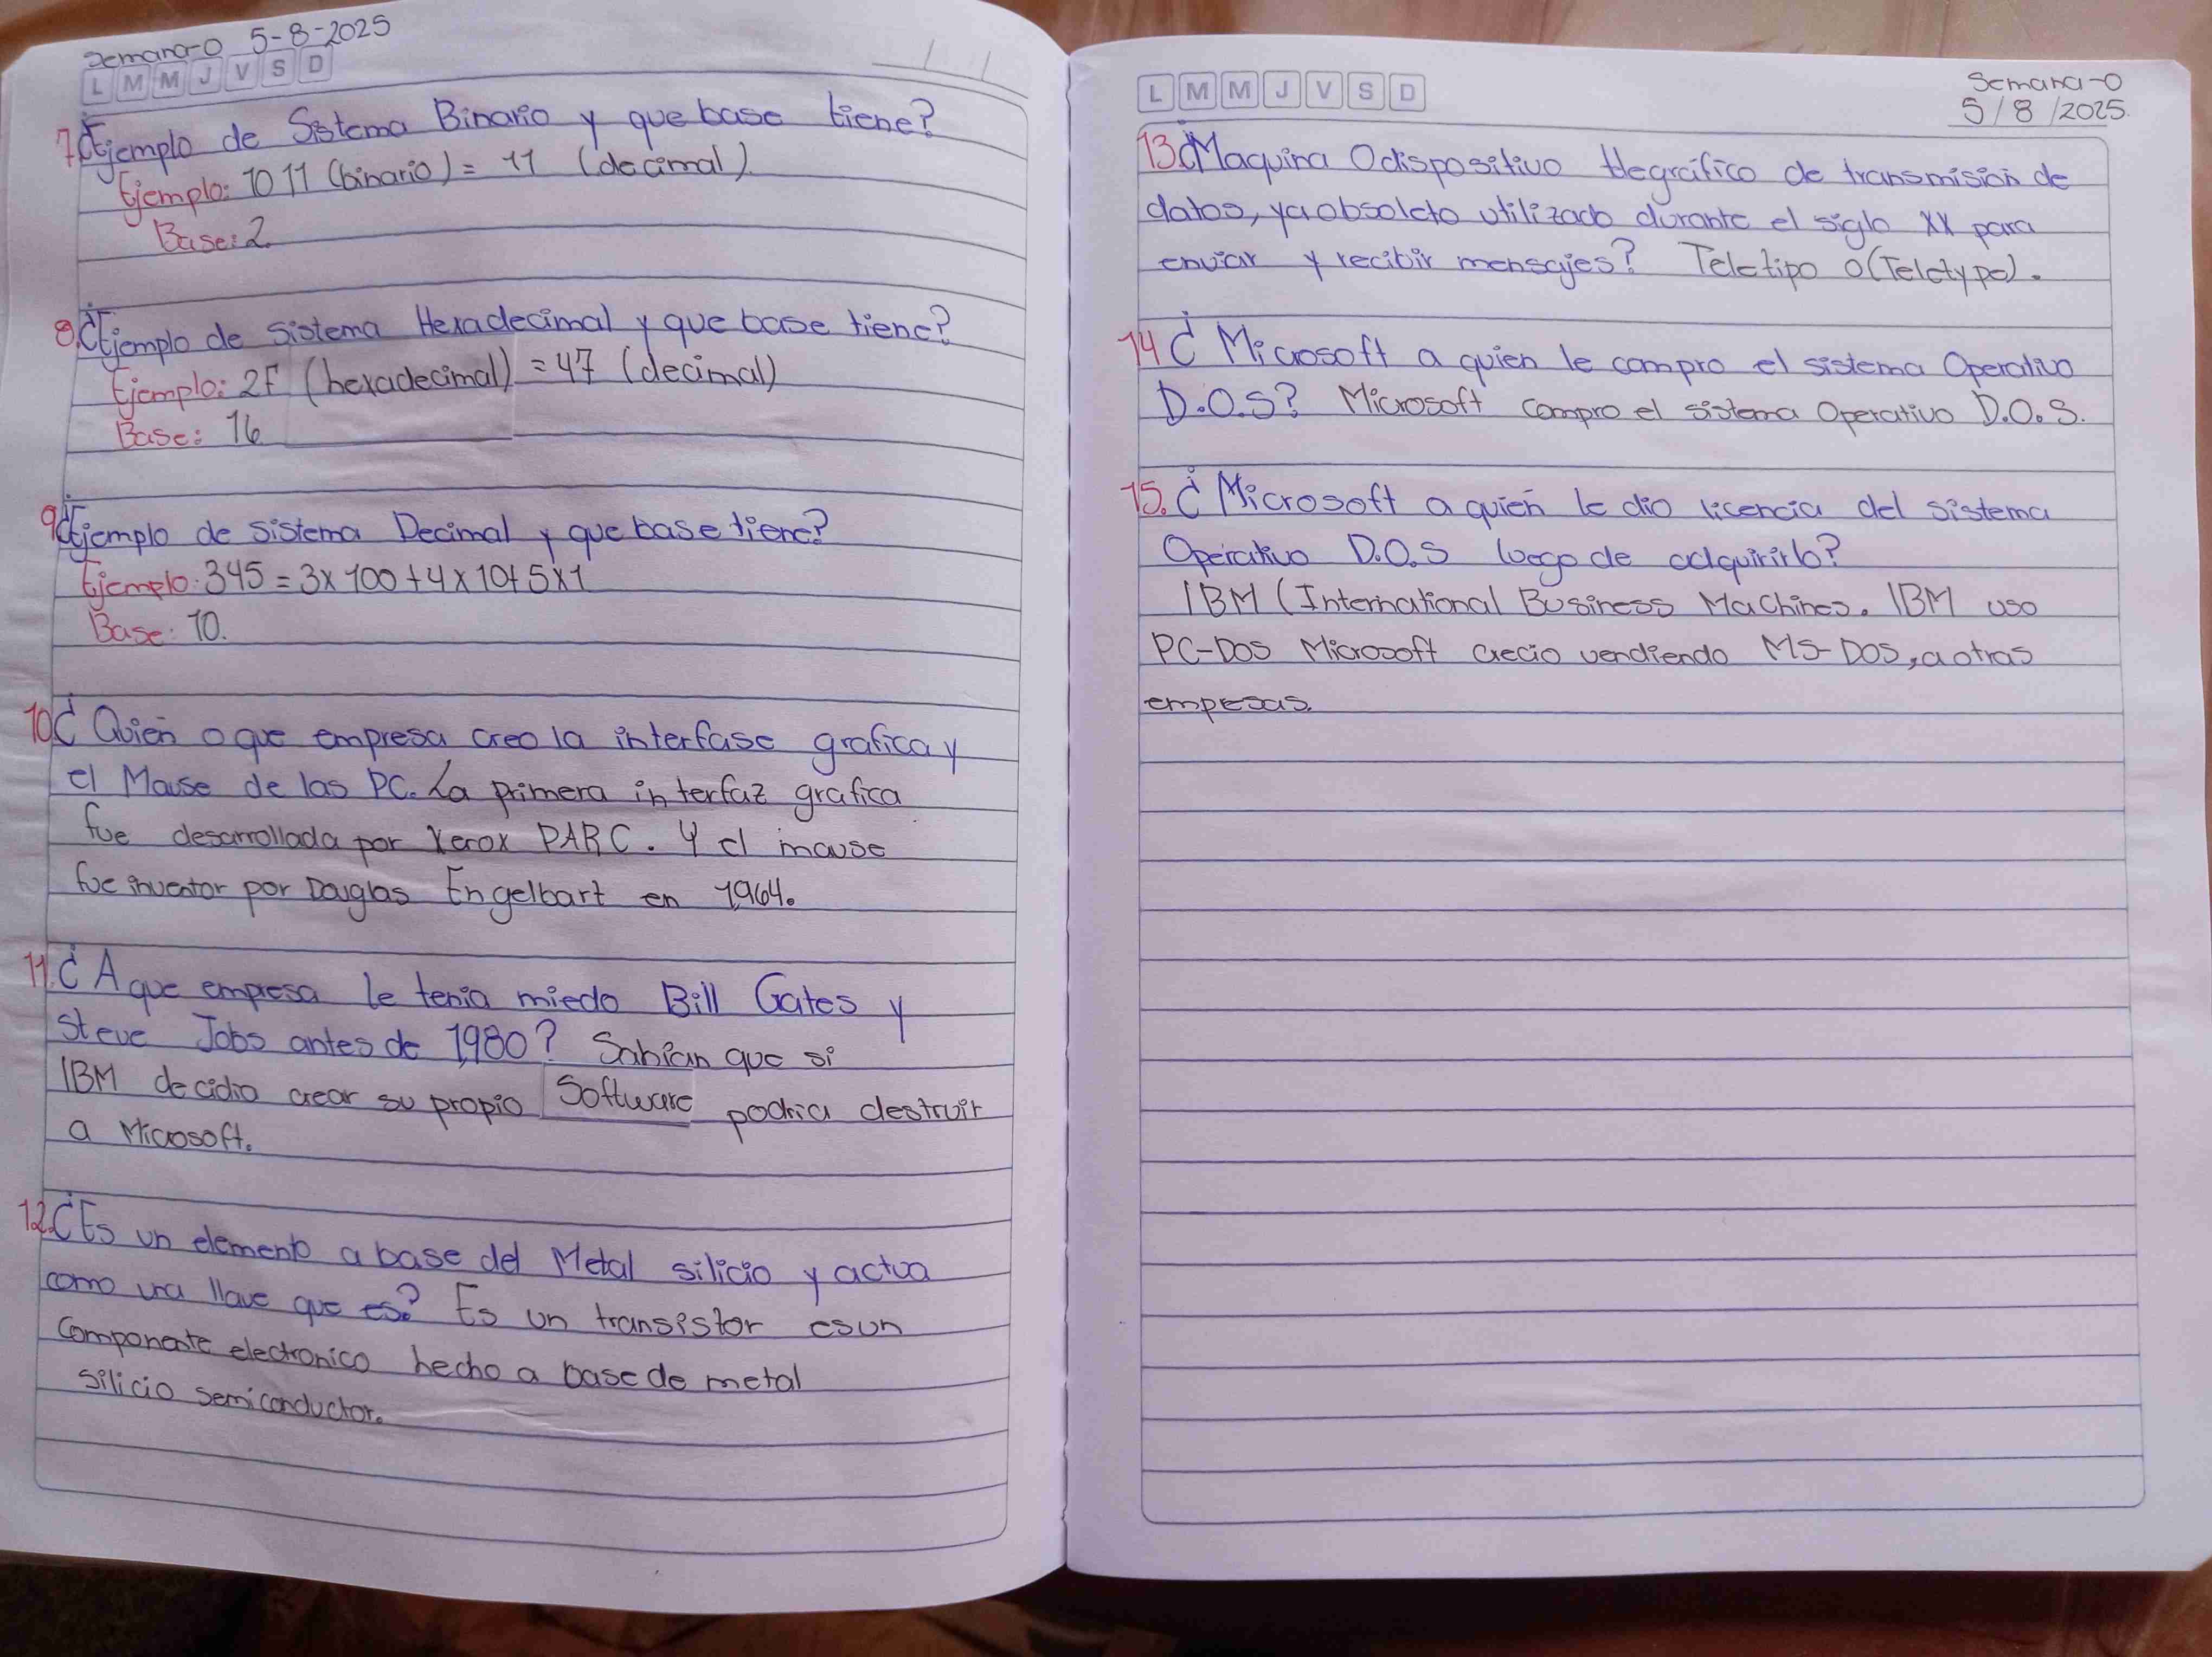 Semana-0 5-8-2025
L M M J V S D
7.¿Ejemplo de Sistema Binario y que base tiene?
Ejemplo: 1011 (binario) = 11 (decimal).
Base: 2.
8.¿Ejemplo de sistema Hexadecimal y que base tiene?
Ejemplo: 2F (hexadecimal) = 47 (decimal)
Base: 16
9¿Ejemplo de sistema Decimal y que base tiene?
Ejemplo: 345 = 3x100+4x10+5x1
Base: 10.
10¿ Quien o que empresa creo la interfase grafica y
el Mause de las PC. La primera interfaz grafica
fue desarrollada por Xerox PARC. Y el mause
fue inventor por Douglas Engelbart en 1,964.
11.¿ A que empresa le tenia miedo Bill Gates y
Steve Jobs antes de 1,980? Sabian que si
IBM decidio crear su propio Software podria destruir
a Microsoft.
12.¿Es un elemento a base del Metal silicio y actua
como una llave que es? Es un transistor es un
componente electronico hecho a base de metal
silicio semiconductor.
L M M J V S D
Semana-0
5/8/2025.
13.¿Maquina O dispositivo telegráfico de transmisión de
datos, ya obsoleto utilizado durante el siglo XX para
enviar y recibir mensajes? Teletipo o (Teletype).
14 ¿ Microsoft a quien le compro el sistema Operativo
D.O.S? Microsoft compro el sistema Operativo D.O.S.
15.¿ Microsoft a quien le dio licencia del sistema
Operativo D.O.S luego de adquirirlo?
IBM (International Business Machines. IBM uso
PC-DOS Microsoft crecio vendiendo MS-DOS, a otras
empresas.